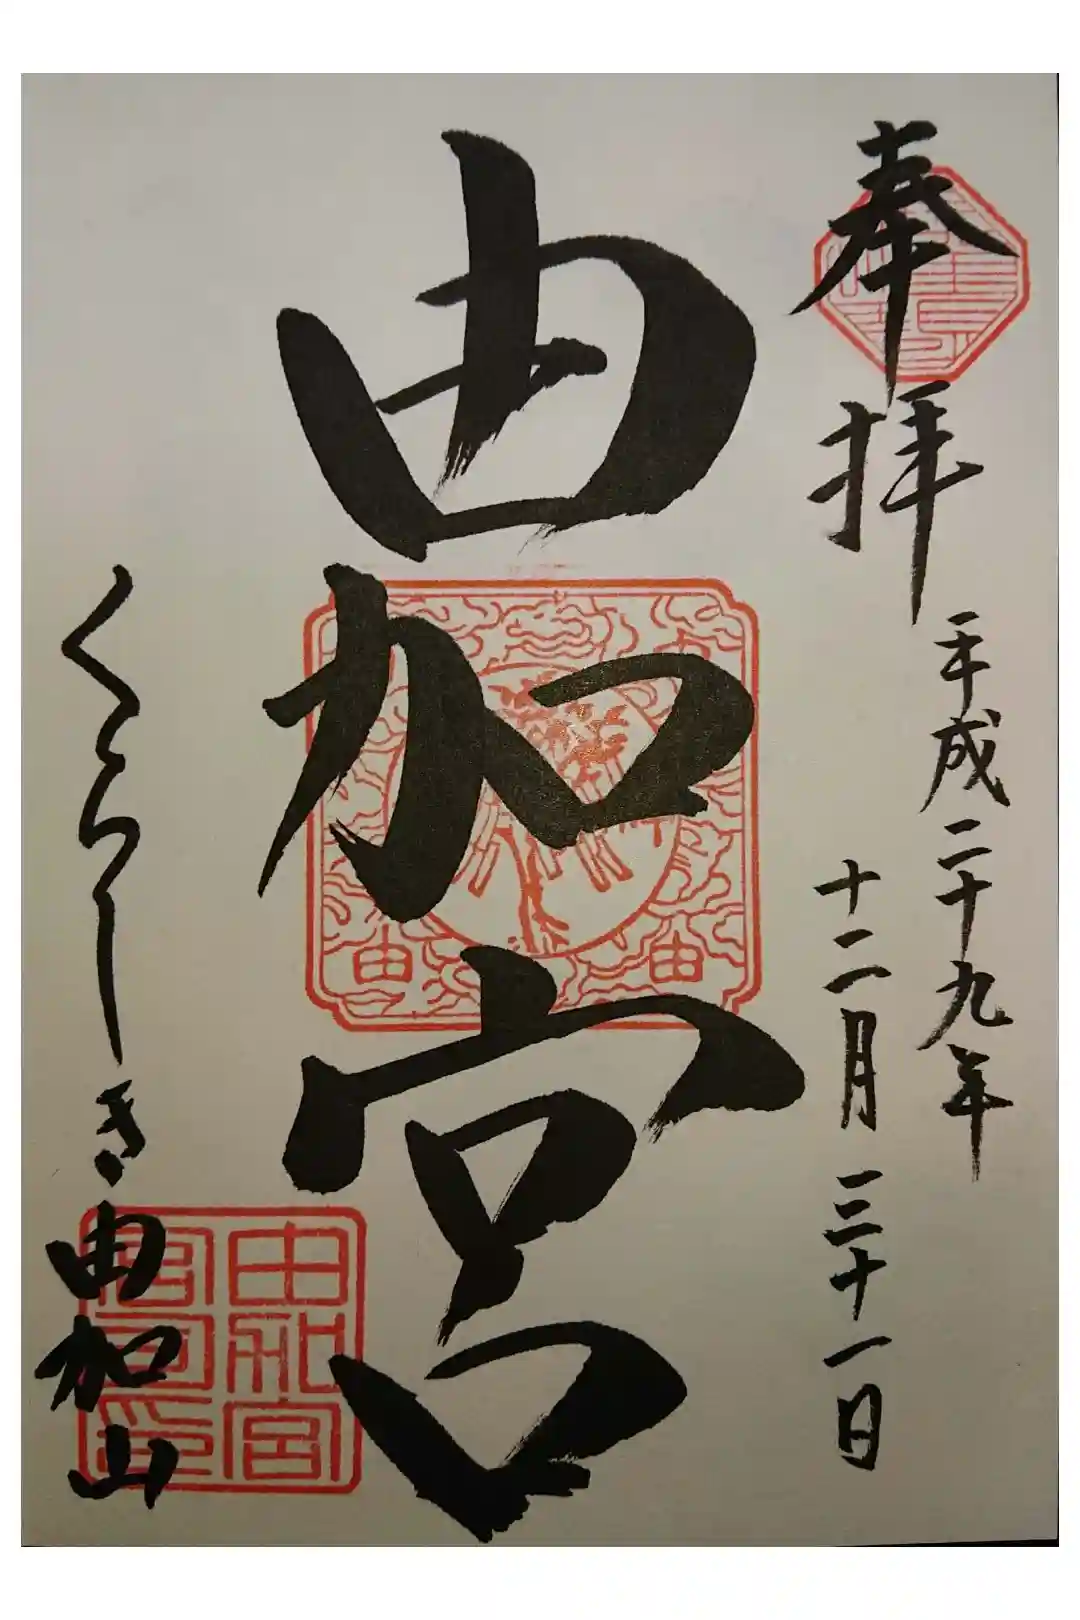 奉拝
平成二十九年
十二月三十一日
由加宮
くらしき由加山
由
由